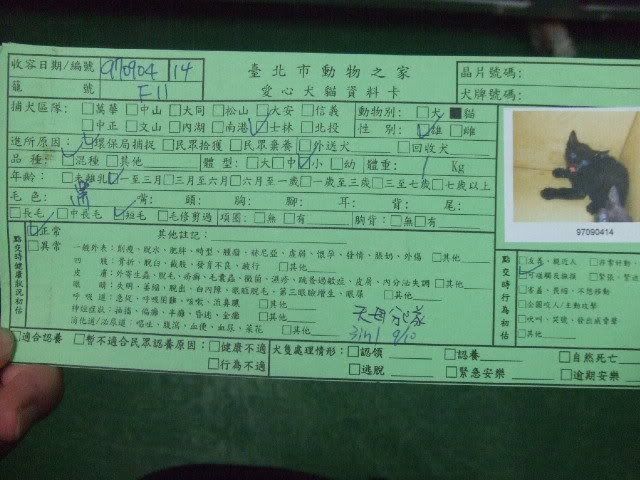 收容日期/編號 970904 14 臺北市動物之家 晶片號碼:
籠號 F11 愛心犬貓資料卡 犬牌號碼:
捕犬區隊: □萬華 □中山 □大同 □松山 □大安 □信義 動物別: □犬 ■貓
□中正 □文山 □內湖 □南港 ☑士林 □北投 性別: ☑雄 □雌
進所原因: ☑環保局捕捉 □民眾拾獲 □民眾棄養 □外送犬 □回收犬
品種: ☑混種 □其他 體型: □大 □中 ☑小 □幼 體重: 1 Kg
年齡: □未離乳 ☑一至三月 □三月至六月 □六月至一歲 □一歲至三歲 □三至七歲 □七歲以上
毛色: 黑 背: 頭: 胸: 腳: 耳: 背: 尾:
□長毛 □中長毛 ☑短毛 □毛修剪過 項圈: □無 □有 胸背: □無 □有
97090414
點交時健康狀況初估
☑正常 其他註記:
□異常
一般外表: 削瘦、脫水、肥胖、畸型、腫瘤、赫尼亞、虛弱、懷孕、發情、脹奶、外傷 □其他
四肢: 骨折、脫臼、截肢、發育不良、跛行 □其他
皮膚: 外寄生蟲、脫毛、疥癬、毛囊蟲、黴菌、濕疹、跳蚤過敏症、皮屑、內分泌失調 □其他
眼睛: 失明、萎縮、脫出、白內障、眼瞼脫毛、第三眼瞼增生、眼屎 □其他
呼吸道: 急促、呼吸困難、咳嗽、流鼻膿 □其他
神經症狀: 抽搐、偏癱、半癱、昏迷、全癱 □其他
消化道/泌尿道: 嘔吐、腹瀉、血便、血尿、 □其他
天母
3in1 9/10
點交時行為初估
□友善、親近人
☑可碰觸長撫摸
□畏縮、不想移動
□企圖咬人/主動攻擊
□吠叫、哭號、發出威脅聲
□其他
□適合認養 □暫不適合民眾認養原因: □健康不適 犬隻處理情形: □認領 □認養 □自然死亡
□行為不適 □逃脫 □緊急安樂 □逾期安樂